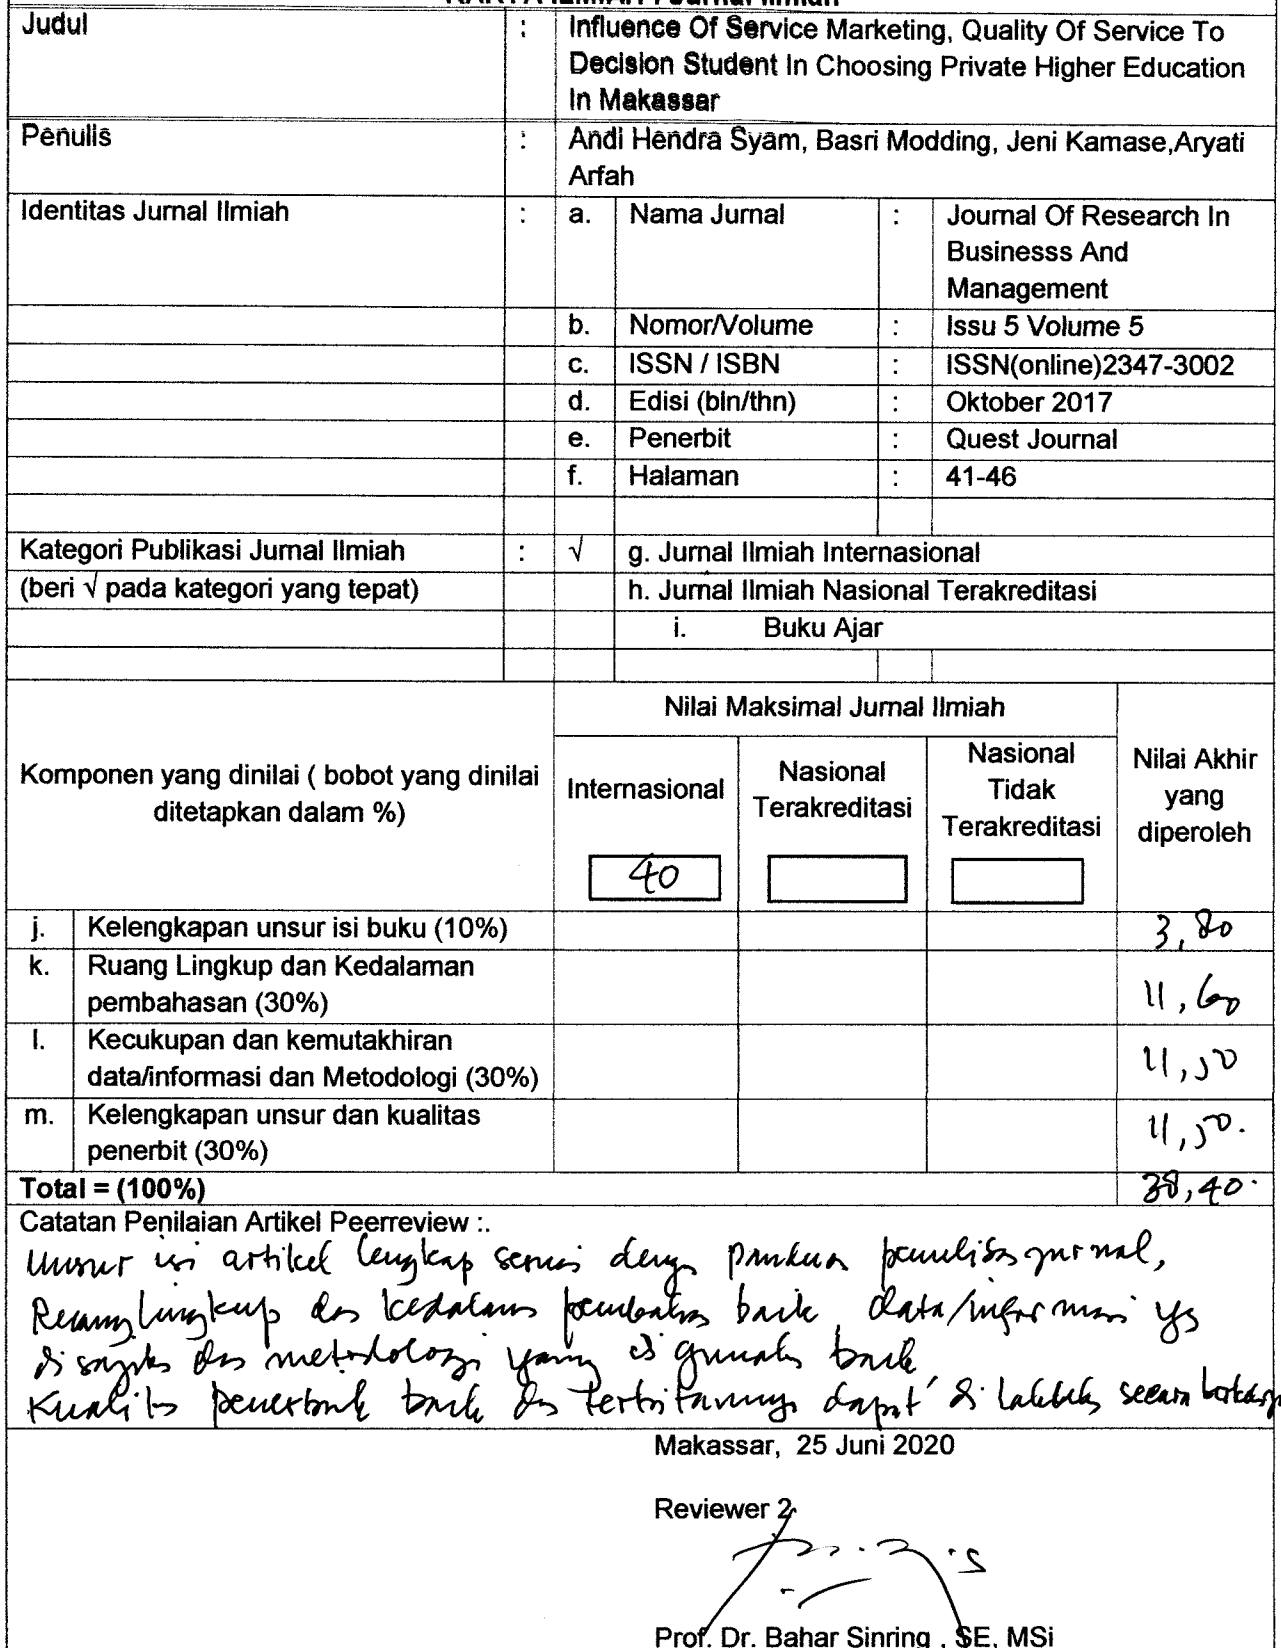 Judul : Influence Of Service Marketing, Quality Of Service To
Decision Student In Choosing Private Higher Education
In Makassar
Penulis : Andi Hendra Syam, Basri Modding, Jeni Kamase,Aryati
Arfah
Identitas Jurnal Ilmiah : a. Nama Jurnal : Journal Of Research In
Businesss And
Management
b. Nomor/Volume : Issu 5 Volume 5
c. ISSN / ISBN : ISSN(online)2347-3002
d. Edisi (bln/thn) : Oktober 2017
e. Penerbit : Quest Journal
f. Halaman : 41-46
Kategori Publikasi Jurnal Ilmiah : √ g. Jurnal Ilmiah Internasional
(beri √ pada kategori yang tepat) h. Jurnal Ilmiah Nasional Terakreditasi
i. Buku Ajar
Komponen yang dinilai ( bobot yang dinilai
ditetapkan dalam %)
Nilai Maksimal Jurnal Ilmiah
Internasional
Nasional
Terakreditasi
Nasional
Tidak
Terakreditasi
Nilai Akhir
yang
diperoleh
40
j. Kelengkapan unsur isi buku (10%) 3,80
k. Ruang Lingkup dan Kedalaman
pembahasan (30%) 11,60
l. Kecukupan dan kemutakhiran
data/informasi dan Metodologi (30%) 11,50
m. Kelengkapan unsur dan kualitas
penerbit (30%) 11,50.
Total = (100%) 38,40.
Catatan Penilaian Artikel Peerreview :.
Unsur isi artikel lengkap sesuai jurnal,
Ruang lingkup kedalaman baik data/informasi yg
metodologi yang baik
Kualitas baik dapat secara
Makassar, 25 Juni 2020
Reviewer 2
Prof. Dr. Bahar Sinring , SE, MSi